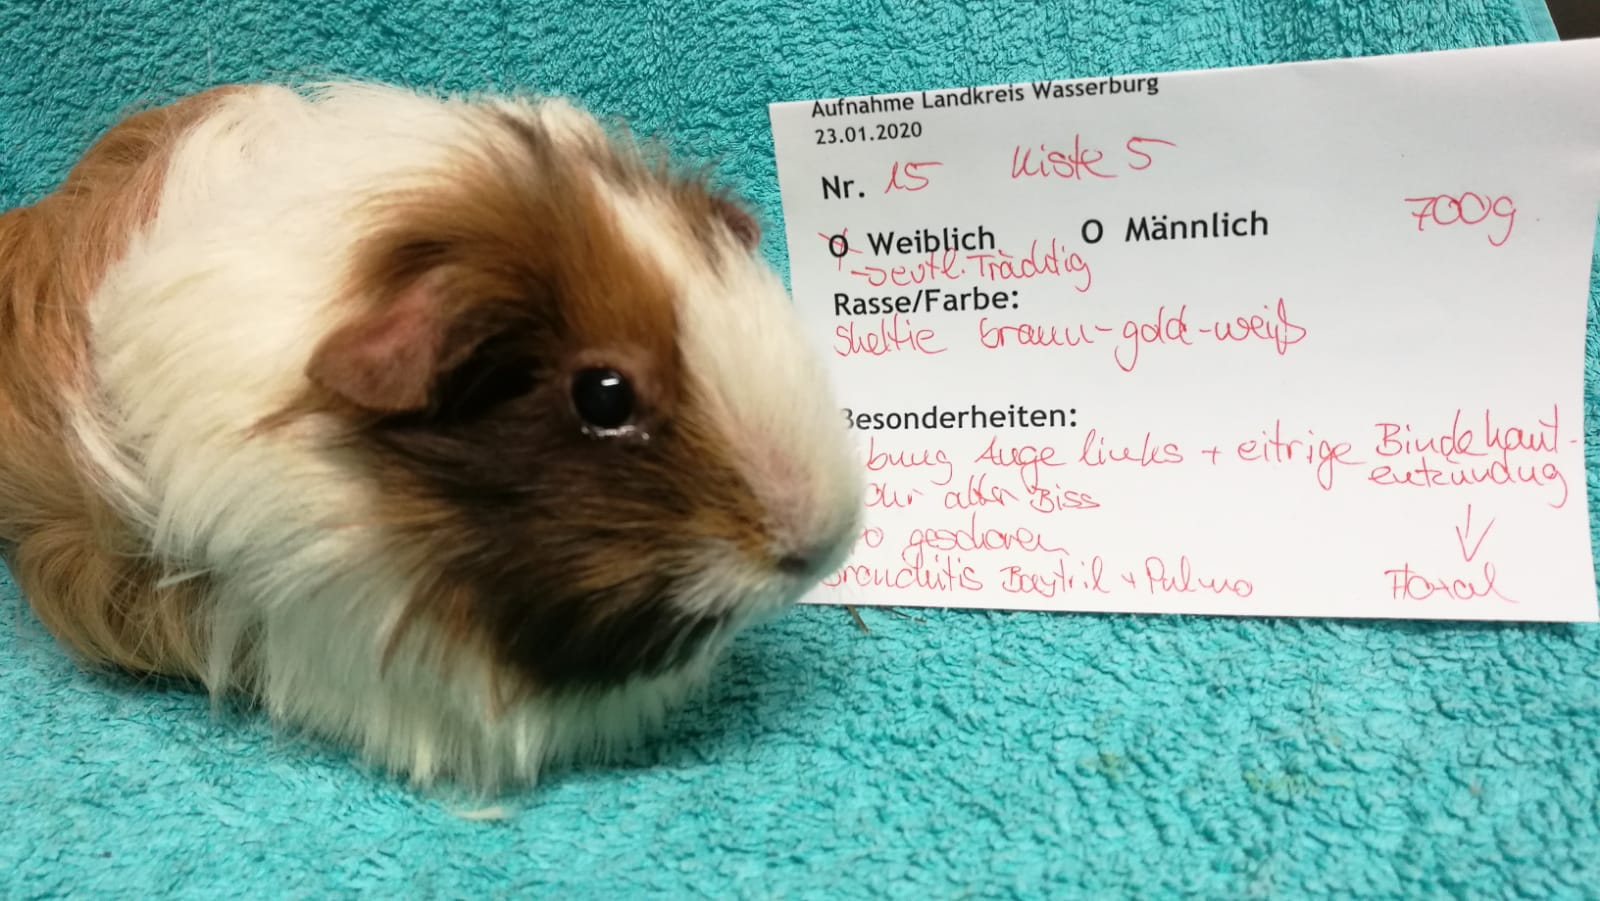 Aufnahme Landkreis Wasserburg
23.01.2020
Nr. 15 Kiste 5
700g
O Weiblich O Männlich
→ evtl. Trächtig
Rasse/Farbe:
Sheltie braun-gold-weiß
Besonderheiten:
bung Auge links + eitrige Bindehaut-
entzündung
alter Biss
↓
geschoren
Bronchitis Baytril + Pulmo
Floxal